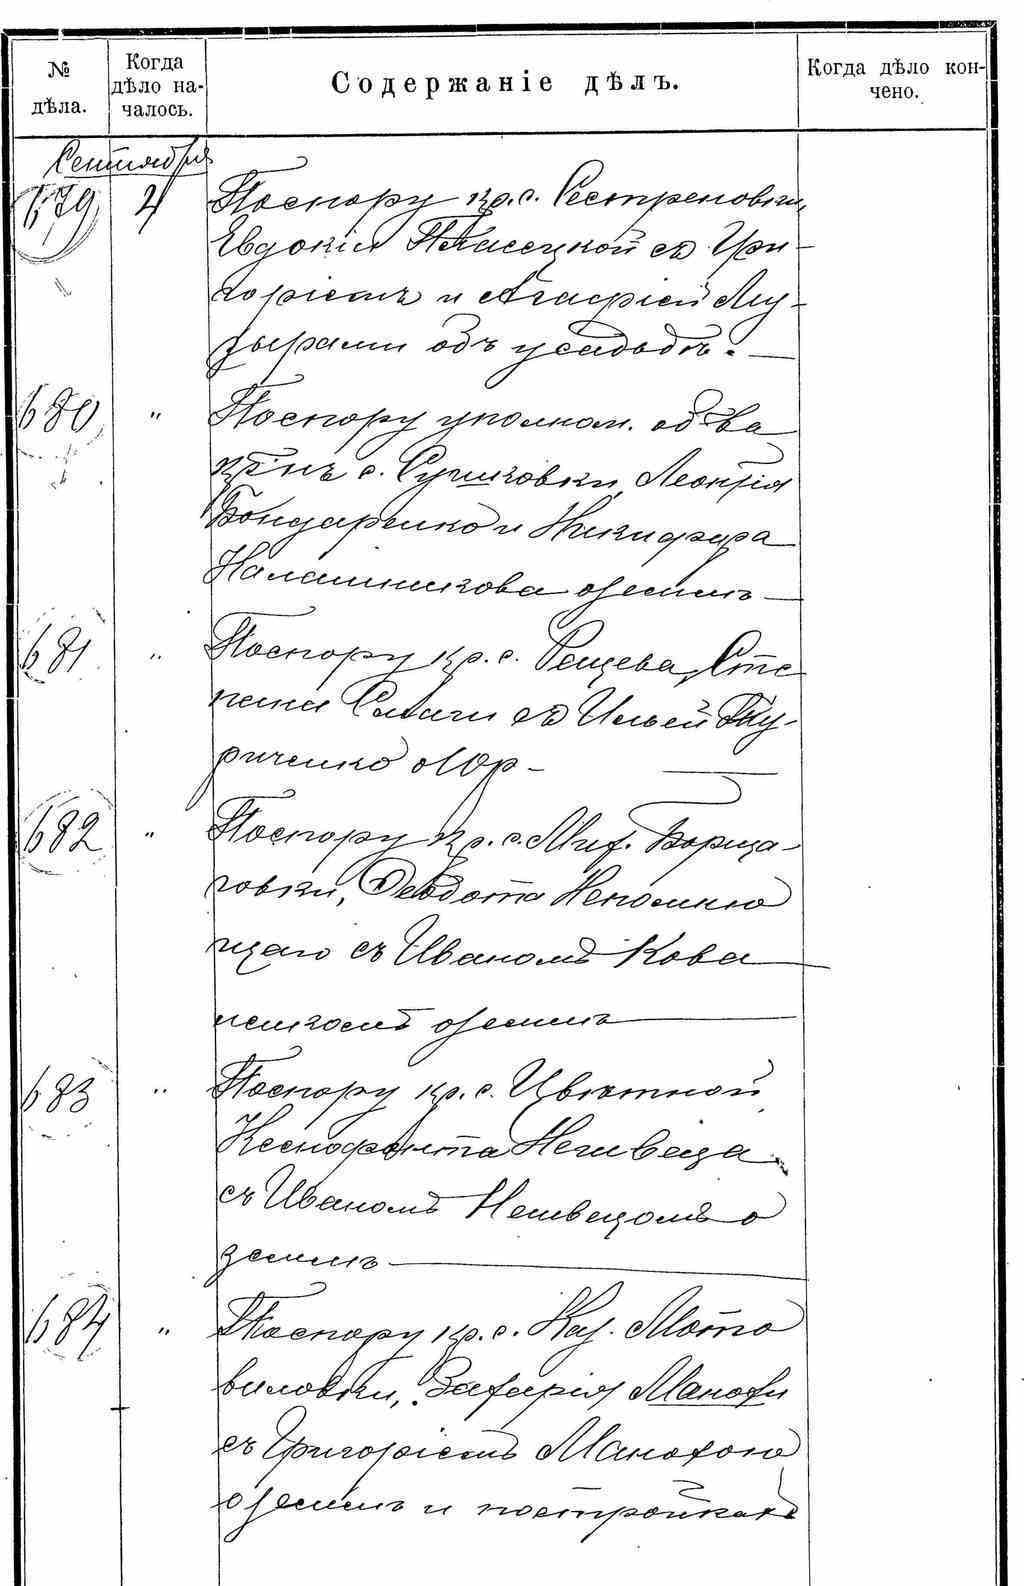 № дѣла.
Когда дѣло началось.
Содержаніе дѣлъ.
Когда дѣло кончено.
Сентября
679 4 По спору кр. с. Сестреновки,
Евдокіи Пясецкой съ Гри-
горіемъ и Агафіей Му-
зырами объ усадьбѣ.
680 " По спору уполном. об-ва
кр-нъ с. Сушковки, Леонтія
Бондаренко и Никифора
Калашникова о землѣ
681 " По спору кр. с. Сте
пана с Ильей
риченко о
682 " По спору кр. с. Мих. Борща-
говки, Феодота Непомню
щаго съ Иваномъ Кова
о землѣ
683 " По спору кр. с. Цвѣтной
Ксенофонта Нешвеца
съ Иваномъ Нешвецомъ о
землѣ
684 " По спору кр. с. Каз. Мото
виловки, Захарія Манохи
съ Григоріемъ Манохою
о землѣ и постройкахъ